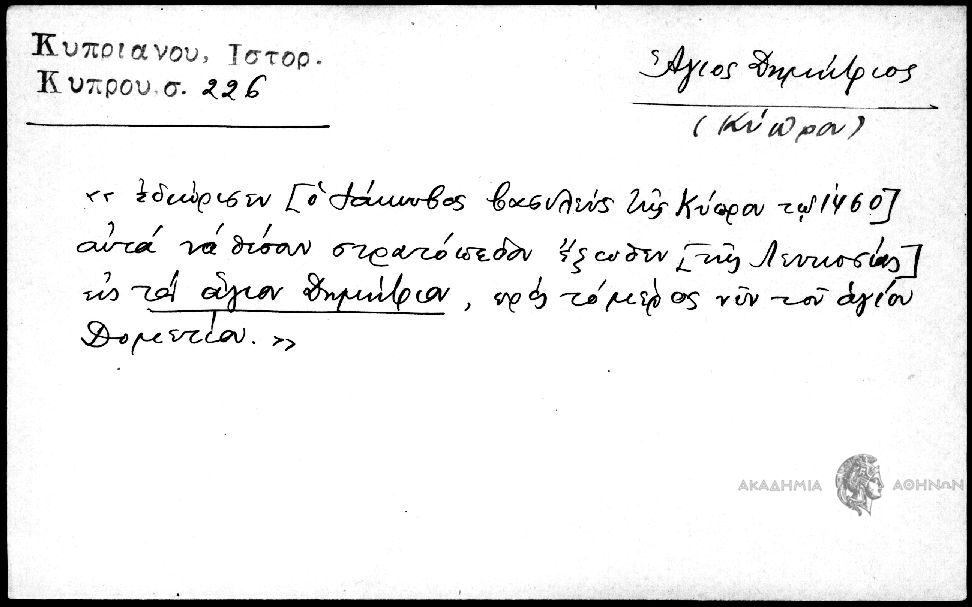 Κυπριανου, Ιστορ.
Κυπρου σ. 226
Ἅγιος Δημήτριος
(Κύπρου)
«ἐδιώρισεν [ὁ Ἰάκωβος βασιλεὺς τῆς Κύπρου τῷ 1460]
αὐτὰ νὰ θέσουν στρατόπεδον ἔξωθεν [τῆς Λευκοσίας]
εἰς τὸν ἅγιον Δημήτριον, πρὸς τὸ μέρος νῦν τοῦ ἁγίου
Δομετίου.»
ΑΚΑΔΗΜΙΑ ΑΘΗΝΩΝ